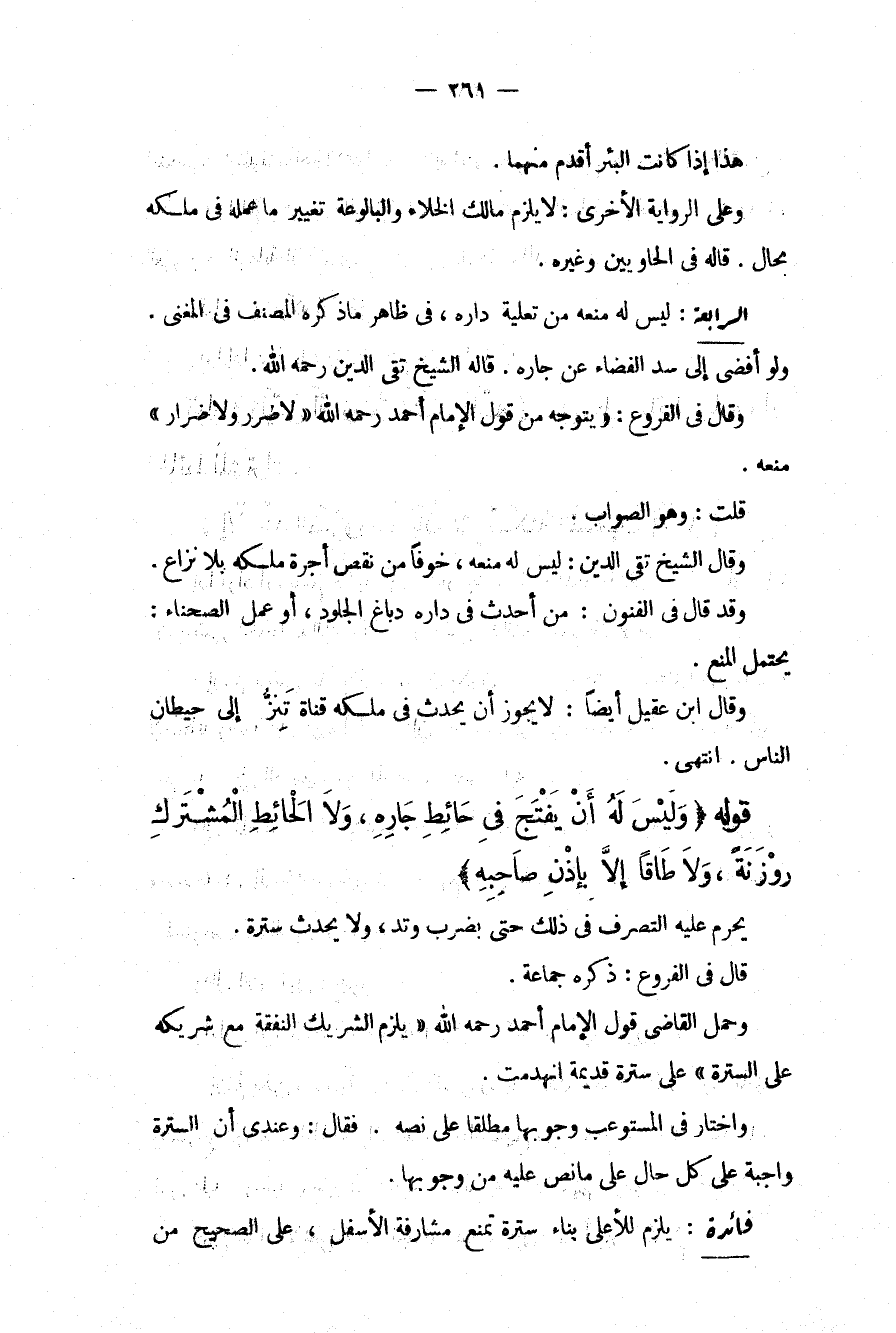 — ٢٦١ —
هذا إذا كانت البئر أقدم منهما .
وعلى الرواية الأخرى : لا يلزم مالك الخلاء والبالوعة تغيير ما عمله فى ملكه
بحال . قاله فى الحاويين وغيره .
الرابعة : ليس له منعه من تعلية داره ، فى ظاهر ماذكره المصنف فى المغنى .
ولو أفضى إلى سد الفضاء عن جاره . قاله الشيخ تقى الدين رحمه الله .
وقال فى الفروع : ويتوجه من قول الإمام أحمد رحمه الله « لاضرر ولا ضرار »
منعه .
قلت : وهو الصواب .
وقال الشيخ تقى الدين : ليس له منعه ، خوفاً من نقص أجرة ملكه بلا نزاع .
وقد قال فى الفنون : من أحدث فى داره دباغ الجلود ، أو عمل الصحناء :
يحتمل المنع .
وقال ابن عقيل أيضاً : لايجوز أن يحدث فى ملكه قناة تَنِزُّ إلى حيطان
الناس . انتهى .
قوله ﴿ وَلَيْسَ لَهُ أَنْ يَفْتَحَ فِى حَائِطِ جَارِهِ ، وَلاَ الْحَائِطِ الْمُشْتَرَكِ
رَوْزَنَةً ، وَلاَ طَاقًا إِلاَّ بِإِذْنِ صَاحِبِهِ ﴾
يحرم عليه التصرف فى ذلك حتى بضرب وتد ، ولا يحدث سترة .
قال فى الفروع : ذكره جماعة .
وحمل القاضى قول الإمام أحمد رحمه الله « يلزم الشريك النفقة مع شريكه
على السترة » على سترة قديمة انهدمت .
واختار فى المستوعب وجوبها مطلقا على نصه . فقال : وعندى أن السترة
واجبة على كل حال على مانص عليه من وجوبها .
فائدة : يلزم للأعلى بناء سترة تمنع مشارفة الأسفل ، على الصحيح من